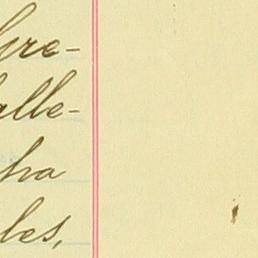 gre-
alle-
ha
les,